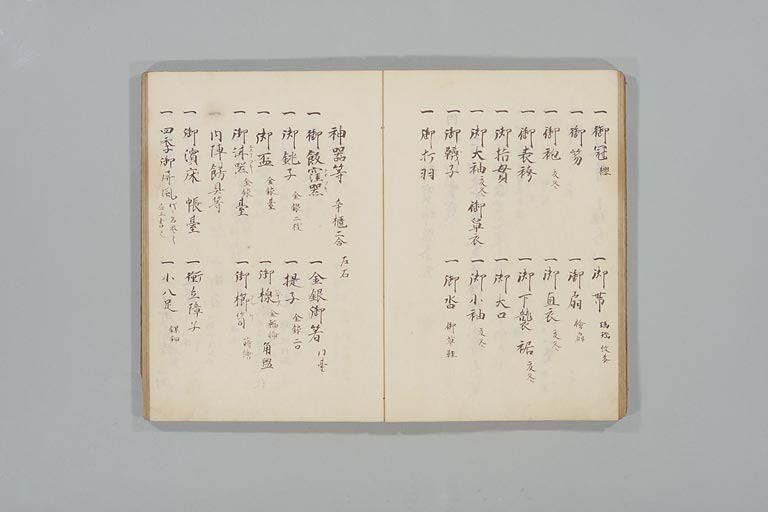 一 御冠 纓 一 御帯
一 御笏 一 御扇
一 御袍 夏冬 一 御直衣 夏冬
一 御表袴 一 御下襲 裾 夏冬
一 御指貫 一 御大口
一 御大袖 夏冬 御單衣 一 御小袖 夏冬
一 御襪子 一 御沓 御草鞋
一 御打羽
神器等 辛櫃二合 左右
一 御飯窪器 一 金銀御箸 付臺
一 御銚子 金銀二枝 一 提子 金銀二口
一 御盃 金銀臺 一 御楾 金輪 角盥
一 御洗器 金銀 臺 一 御櫛笥 蒔繪
一 内陣餝具等
一 御濱床 帳臺 一 衝立障子
一 四季御屏風 一 小八足